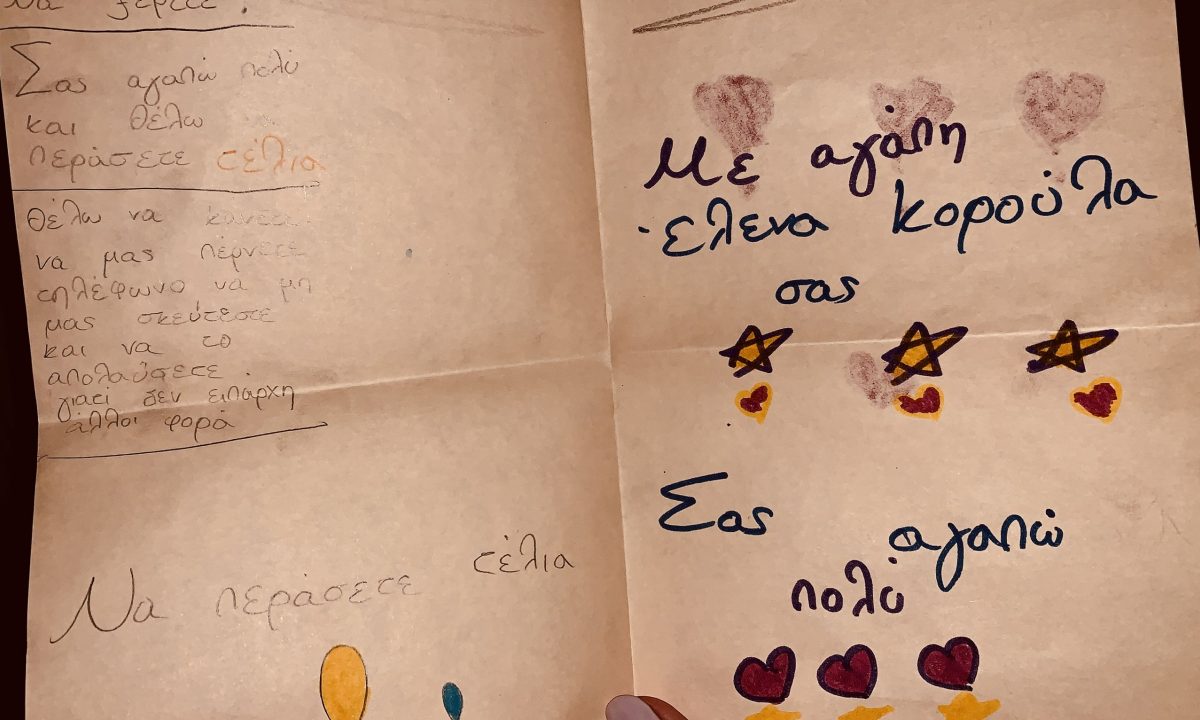 Να ξέρετε :
Σας αγαπώ πολύ
και θέλω
περάσετε τέλια
θέλω να κανετε
να μας πέρνετε
τηλέφωνο να μη
μας σκεύτεστε
και να το
απολαύσετε
γιατί δεν ειπάρχη
άλλοι φορά
Να περάσετε τέλια
Με αγάπη
Έλενα κορούλα
σας
Σας αγαπώ
πολύ